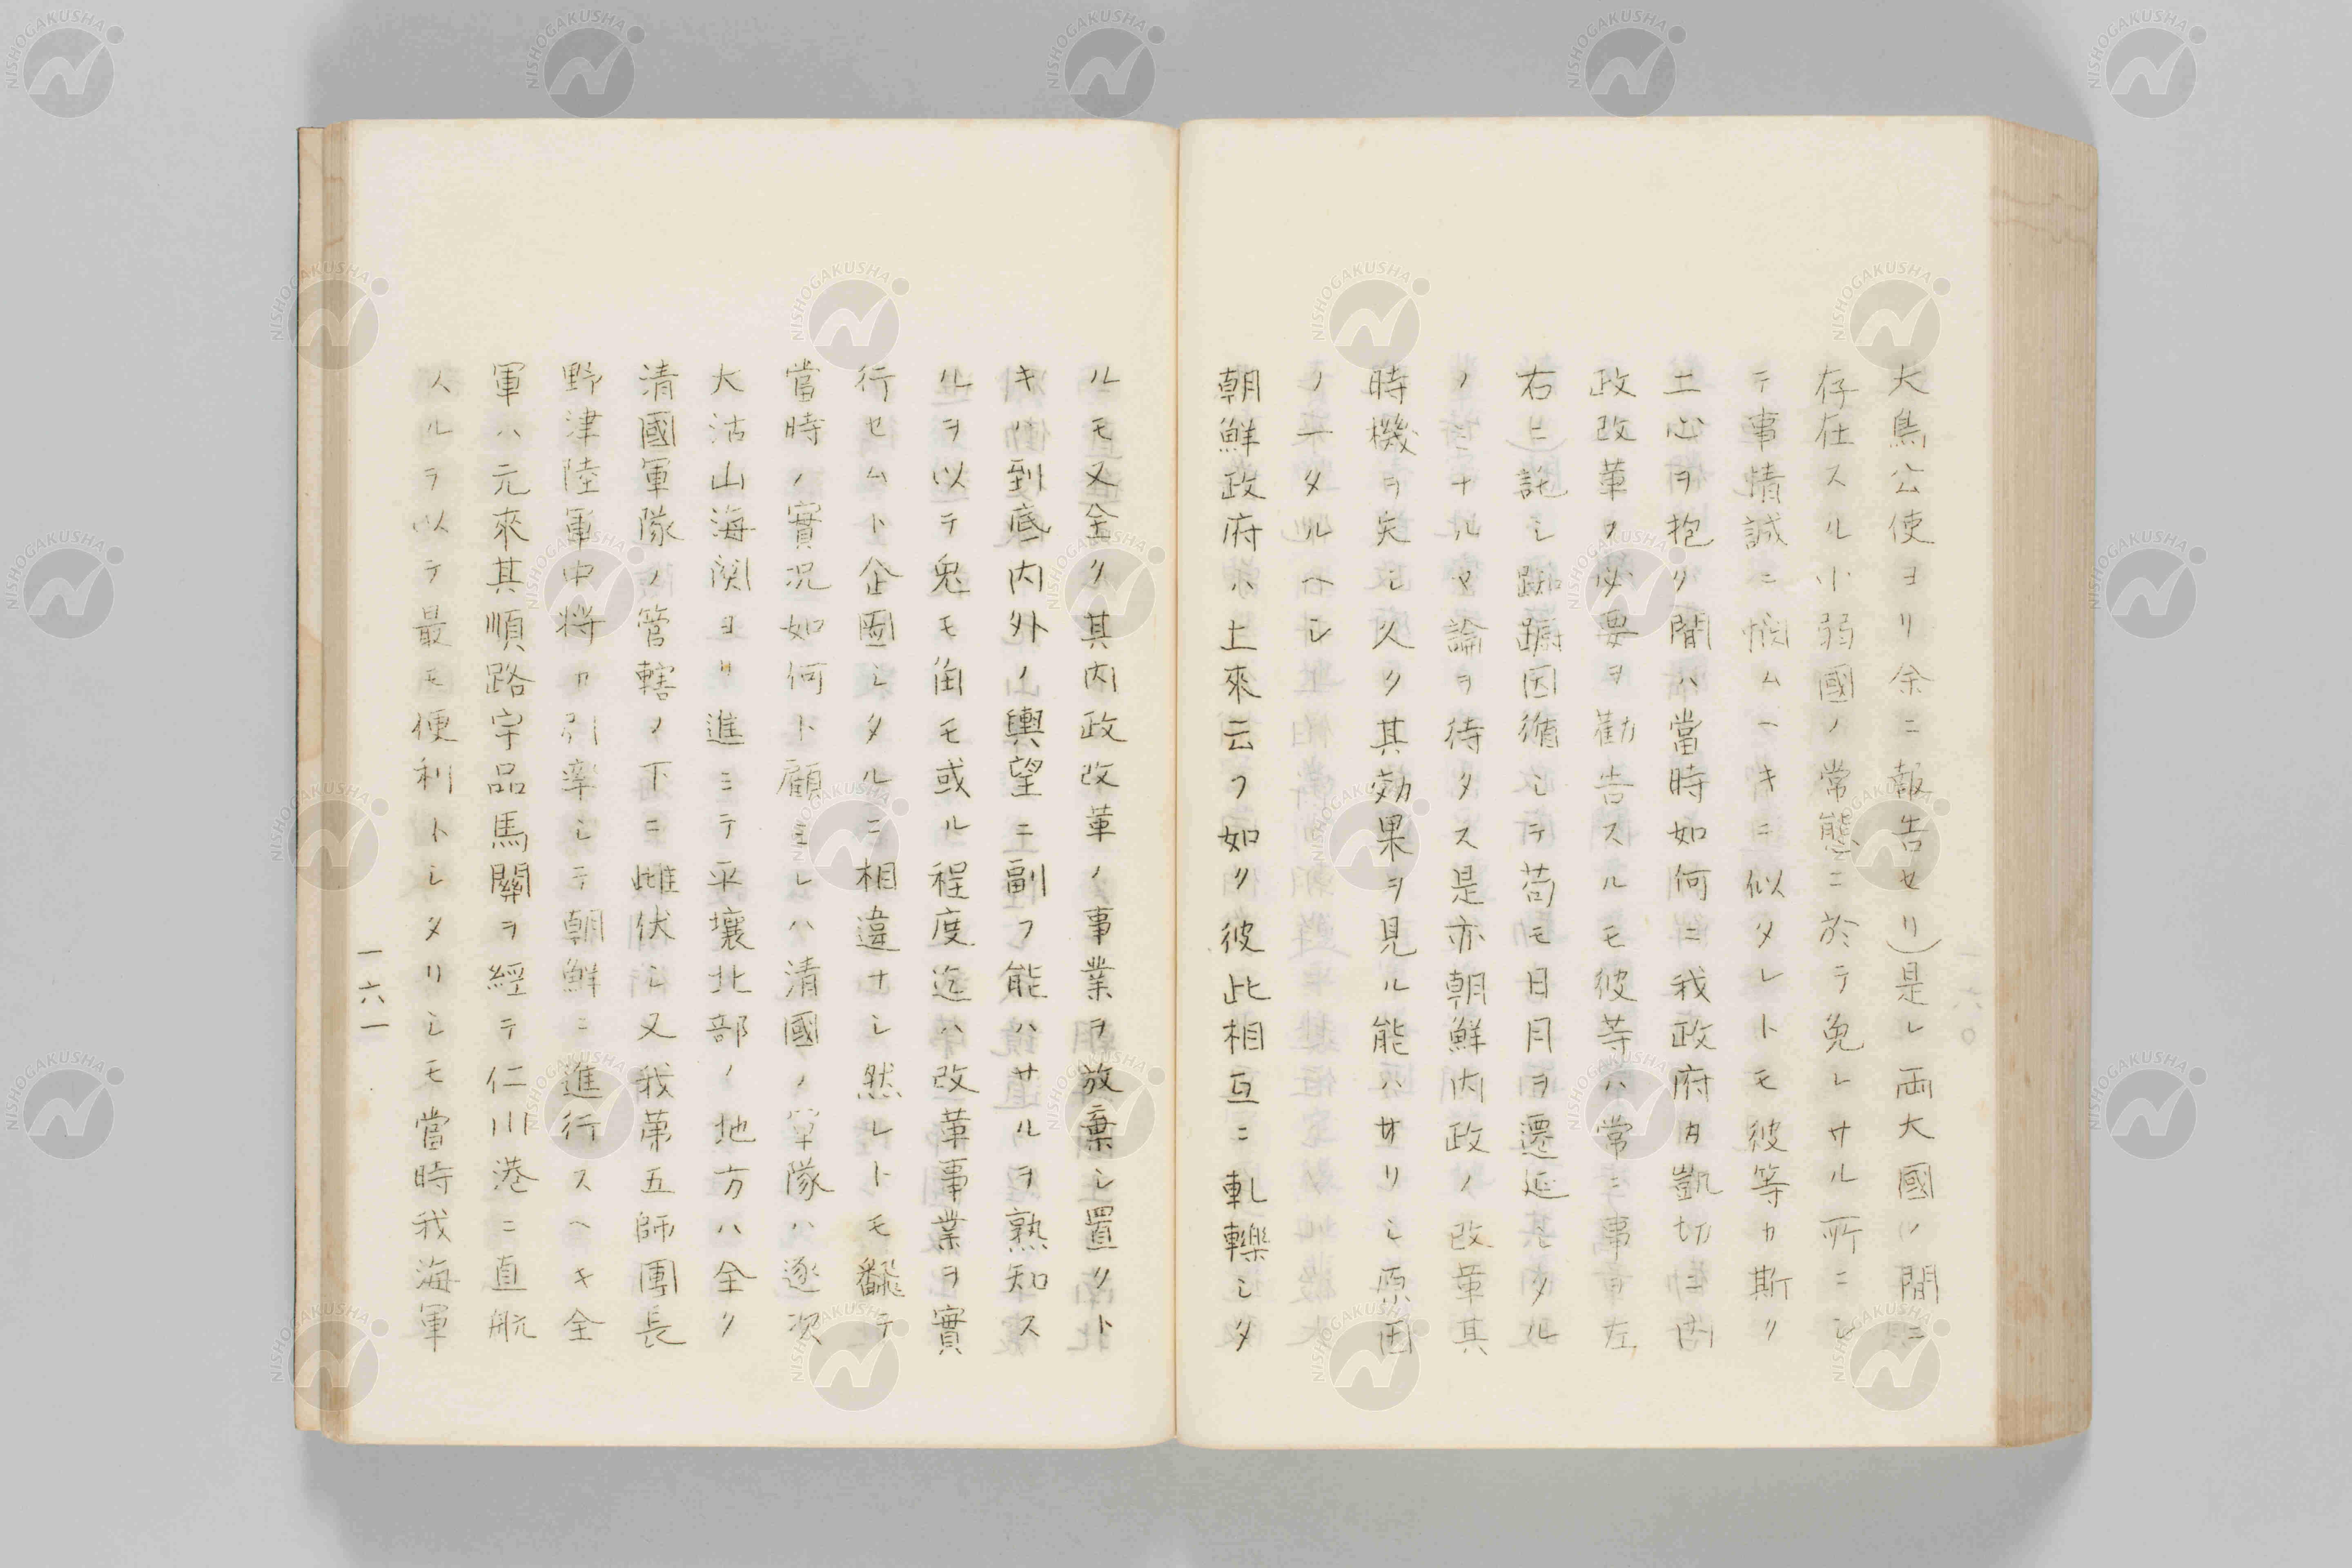 大鳥公使ヨリ余ニ報告セリ)是レ両大國ノ間ニ
存在スル小弱國ノ常態ニ於テ免レサル所ニシ
テ事情誠ニ憫ムヘキニ似タレトモ彼等カ斯ク
二心ヲ抱ク間ハ當時如何ニ我政府カ剴切ニ内
政改革ノ必要ヲ勸告スルモ彼等ハ常ニ事ヲ左
右ニ託シ踟躕因循シテ苟モ日月ヲ遷延シタル
ノミナルヤ論ヲ待タス是亦朝鮮内政ノ改革其
時機ヲ失シ久ク其効果ヲ見ル能ハサリシ原因
ノ一タルヘシ
朝鮮政府ハ上來云フ如ク彼此相互ニ軋轢シタ
ルモ又全ク其内政改革ノ事業ヲ放棄シ置クト
キハ到底内外ノ輿望ニ副フ能ハサルヲ熟知ス
ルヲ以テ兎モ角モ或ル程度迄ハ改革事業ヲ實
行セムト企圖シタルニ相違ナシ然レトモ飜テ
當時ノ實況如何ト顧ミレハ清國ノ軍隊ハ逐次
大沽山海関ヨリ進ミテ平壤北部ノ地方ハ全ク
清國軍隊ノ管轄ノ下ニ雌伏シ又我第五師團長
野津陸軍中將カ引率シテ朝鮮ニ進行スヘキ全
軍ハ元來其順路宇品馬關ヲ經テ仁川港ニ直航
スルヲ以テ最モ便利トシタリシモ當時我海軍
一六一
一六〇
NISHOGAKUSHA